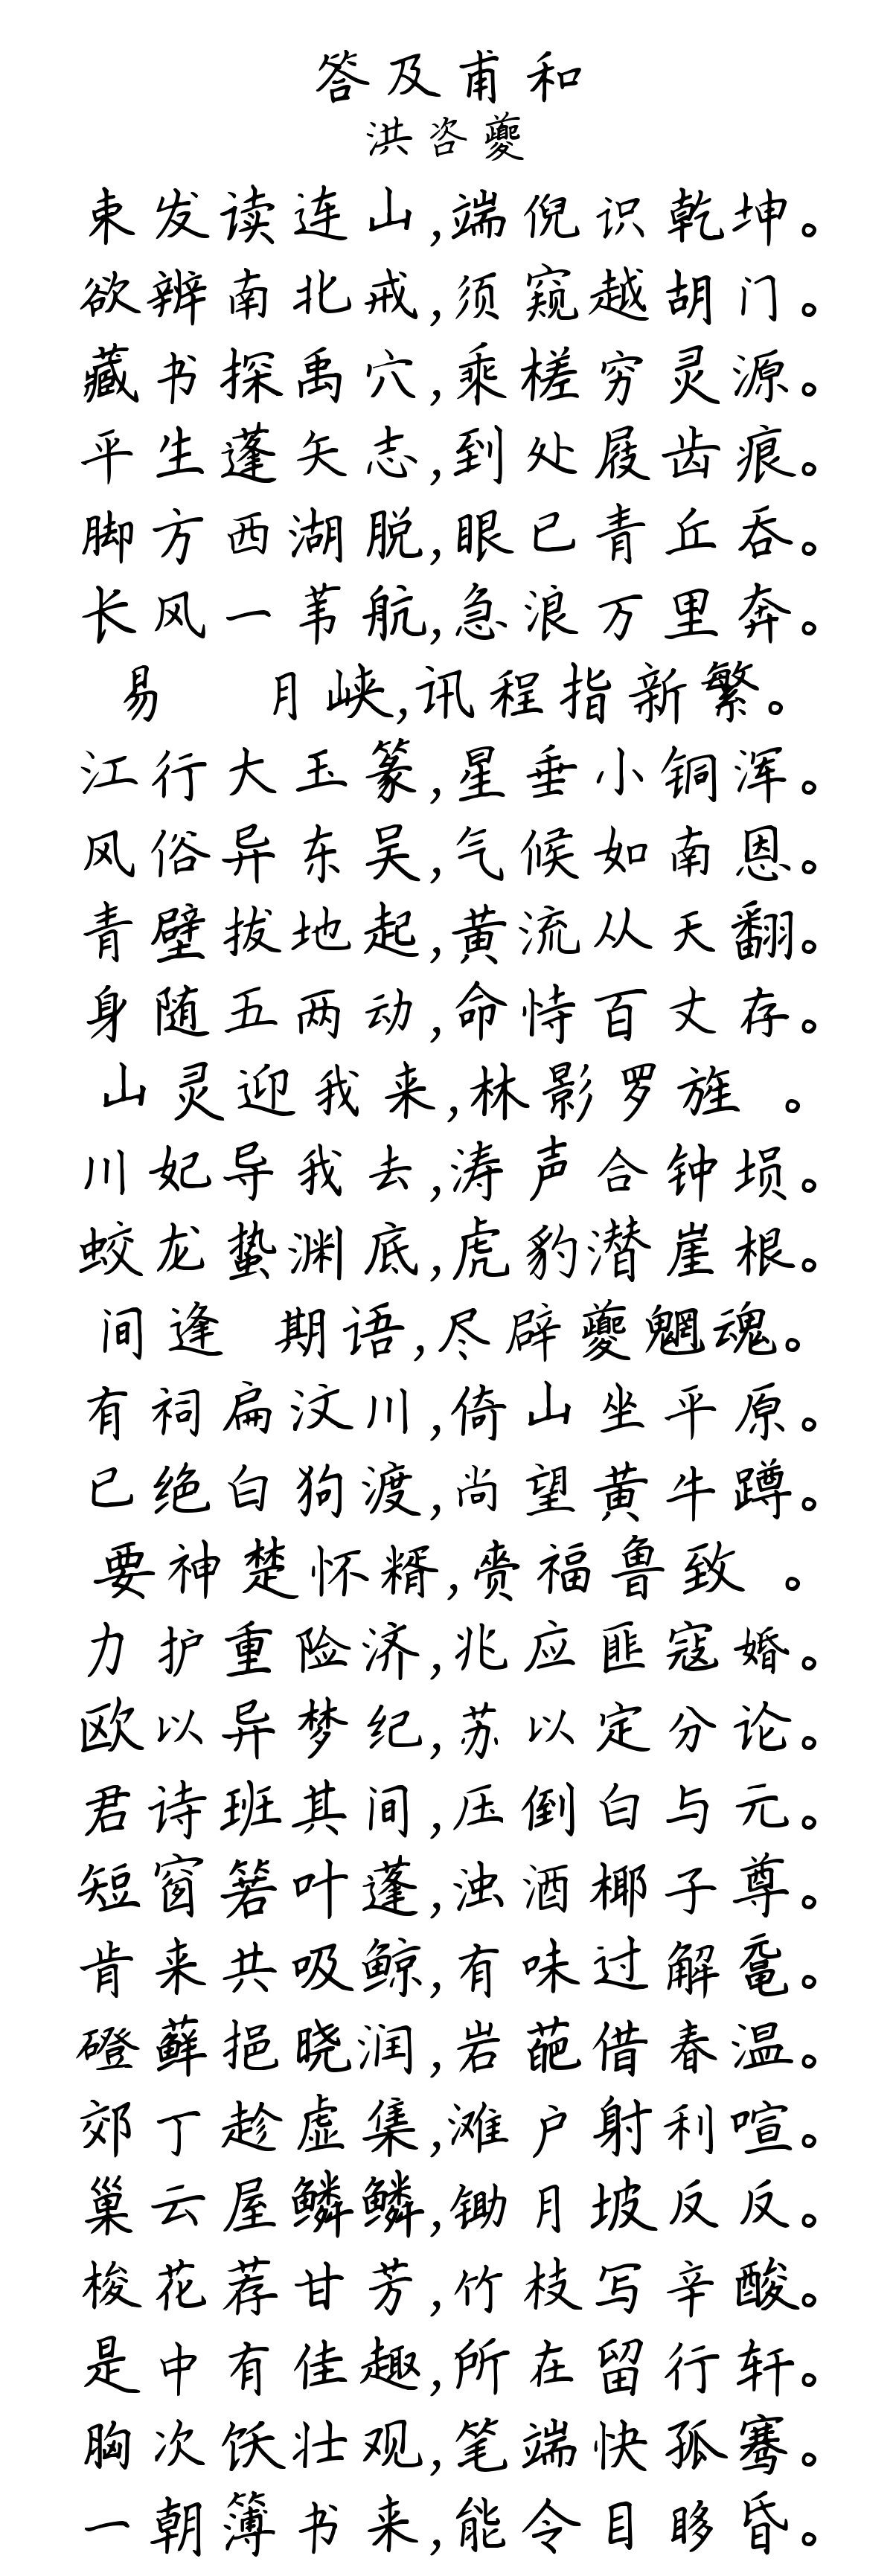 答及甫和
洪咨夔
束发读连山,端倪识乾坤。
欲辨南北戒,须窥越胡门。
藏书探禹穴,乘槎穷灵源。
平生蓬矢志,到处屐齿痕。
脚方西湖脱,眼已青丘吞。
长风一苇航,急浪万里奔。
易 月峡,讯程指新繁。
江行大玉篆,星垂小铜浑。
风俗异东吴,气候如南恩。
青壁拔地起,黄流从天翻。
身随五两动,命恃百丈存。
山灵迎我来,林影罗旌 。
川妃导我去,涛声合钟埙。
蛟龙蛰渊底,虎豹潜崖根。
间逢 期语,尽辟夔魍魂。
有祠扁汶川,倚山坐平原。
已绝白狗渡,尚望黄牛蹲。
要神楚怀糈,赉福鲁致 。
力护重险济,兆应匪寇婚。
欧以异梦纪,苏以定分论。
君诗班其间,压倒白与元。
短窗箬叶蓬,浊酒椰子尊。
肯来共吸鲸,有味过解鼋。
磴藓挹晓润,岩葩借春温。
郊丁趁虚集,滩户射利喧。
巢云屋鳞鳞,锄月坡反反。
梭花荐甘芳,竹枝写辛酸。
是中有佳趣,所在留行轩。
胸次饫壮观,笔端快孤骞。
一朝簿书来,能令目眵昏。